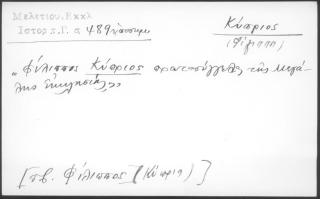 Μελετίου. Εκκλ
Ιστορ τ. Γ. σ 489 ὑποσημ.
Κύπριος
(Φίλιππ)
"Φίλιππος Κύπριος πρωτοσύγγελος τῆς Μεγά-
λης Ἐκκλησίας"
[πβ. Φίλιππος (Κύπριος)]